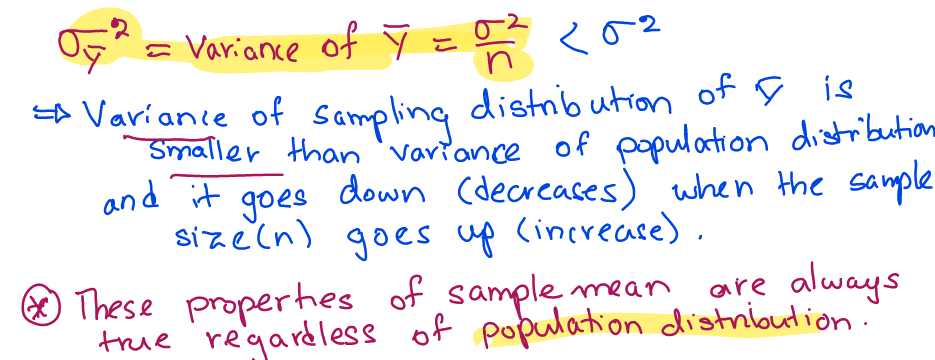 σȳ² = Variance of Ȳ = σ²/n < σ²
⇒ Variance of sampling distribution of Ȳ is
smaller than variance of population distribution
and it goes down (decreases) when the sample
size(n) goes up (increase).
⊛ These properties of sample mean are always
true regardless of population distribution.